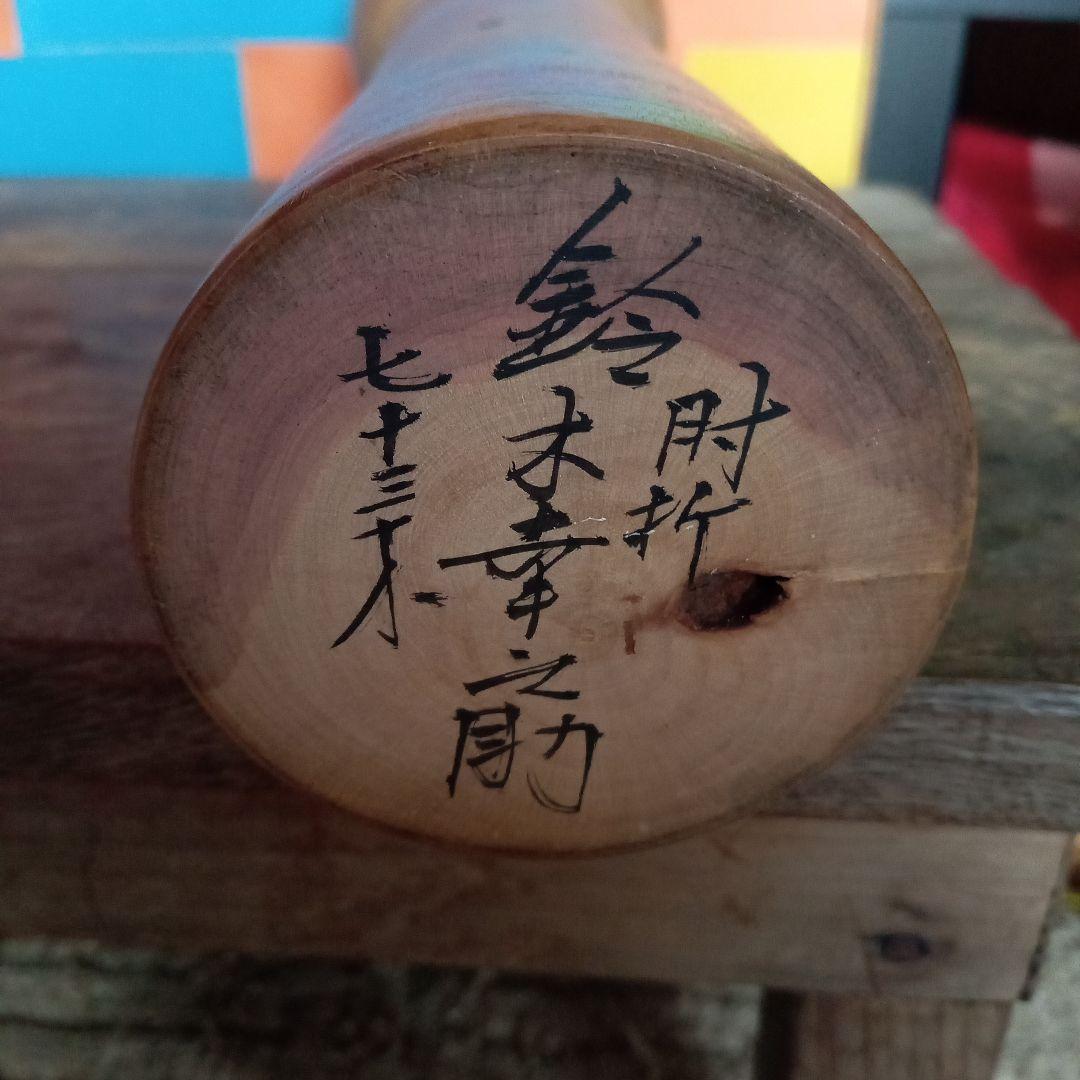 肘折
鈴木幸之助
七十三才